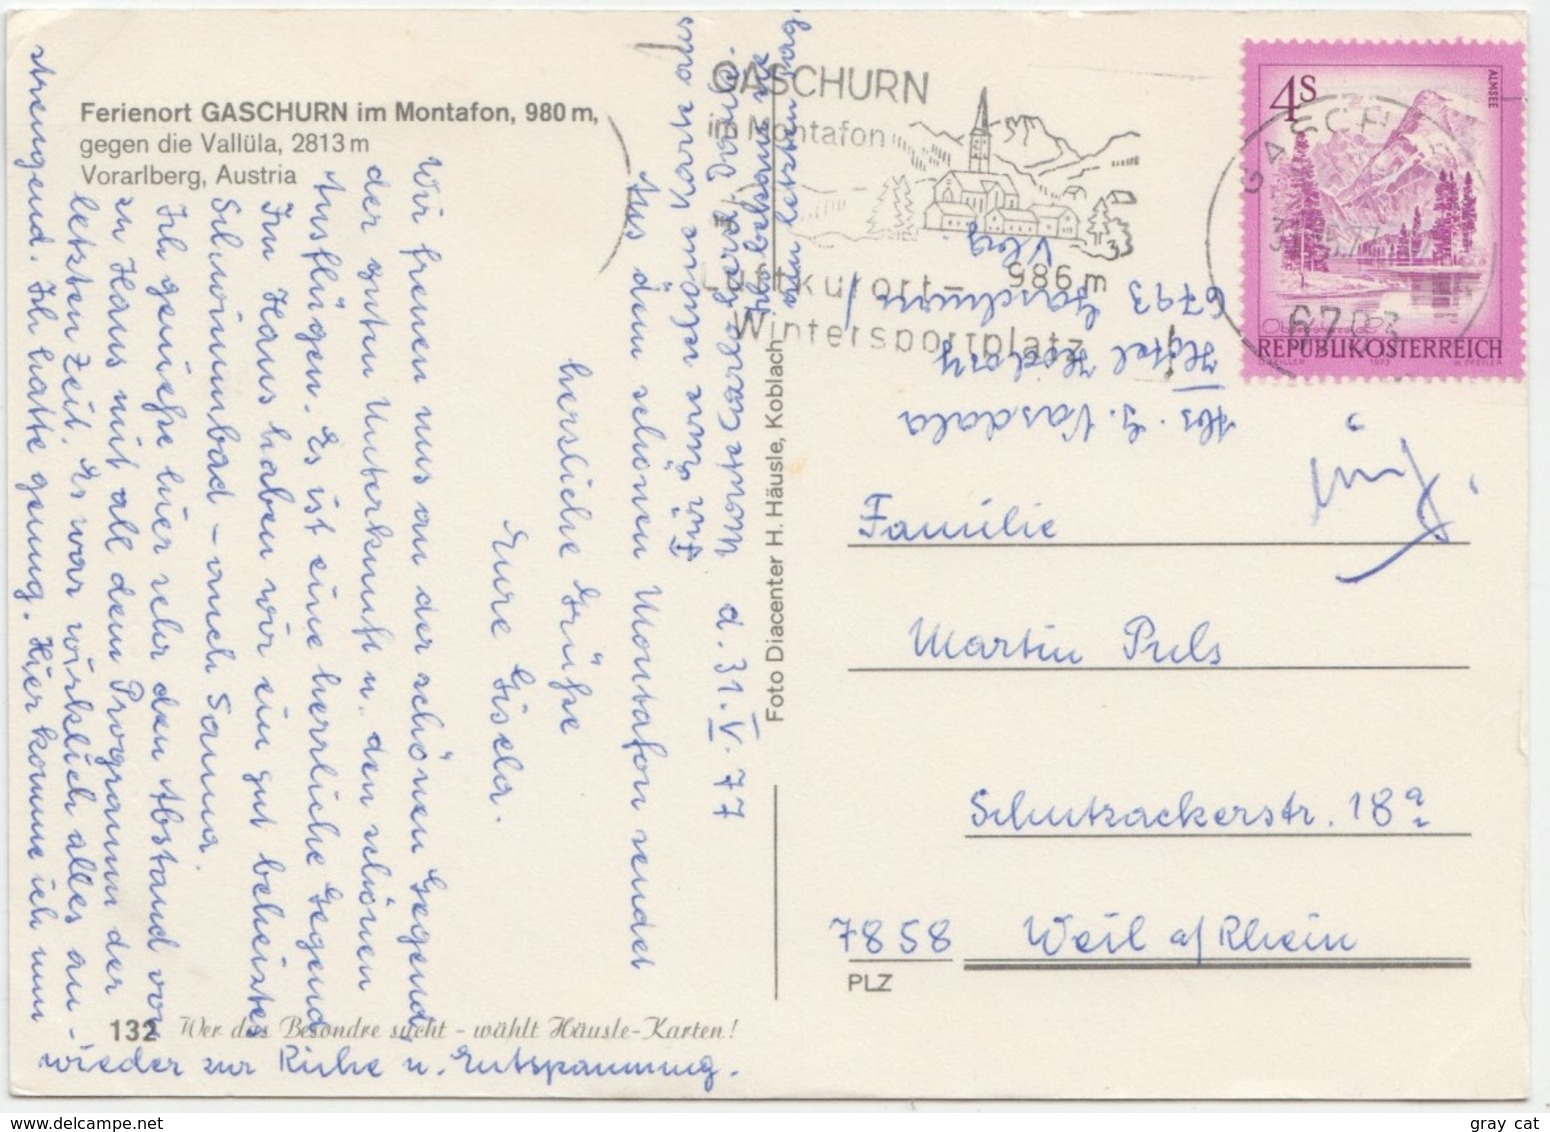 Ferienort GASCHURN im Montafon, 980 m,
gegen die Vallüla, 2813 m
Vorarlberg, Austria
GASCHURN
im Montafon
986 m
Luftkurort -
Wintersportplatz
4S
ALMSEE
REPUBLIK ÖSTERREICH
GASCHURN
6793
d. 31. V. 77
Aus dem schönen Montafon sendet
herzliche Grüße
Eure Gisela.
Wir freuen uns an der schönen Gegend,
der guten Unterkunft u. den schönen
Ausflügen. Es ist eine herrliche Gegend
Im Haus haben wir ein gut beheiztes
Schwimmbad – auch Sauna.
Ich genieße hier sehr den Abstand von
zu Haus mit all dem Programm der
letzten Zeit. Es war wirklich alles an-
strengend. Ich hatte genug. Hier komme ich nun
wieder zur Ruhe u. Entspannung.
Für Eure liebe Karte aus
bekam sie
am letzten Tag.
Abs. G. Vasdala
Hotel
6793 Gaschurn /
Vlbg.
Familie
Martin Puls
Schutzackerstr. 18a
7858 Weil a/Rhein
PLZ
Foto Diacenter H. Häusle, Koblach
132 Wer das Besondre sucht - wählt Häusle-Karten!
gray cat
www.delcampe.net